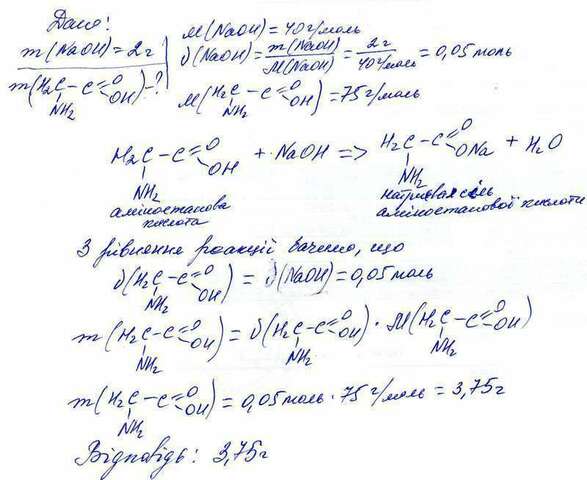 Дано:
m(NaOH)=2г
m(H₂C-C=O OH)-?
NH₂
M(NaOH)=40г/моль
ν(NaOH)=m(NaOH)/M(NaOH)=2г/40г/моль=0,05моль
M(H₂C-C=O OH)=75г/моль
NH₂
H₂C-C=O OH + NaOH => H₂C-C=O ONa + H₂O
NH₂ NH₂
аміноетанова кислота
натрієва сіль аміноетанової кислоти
З рівняння реакції бачимо, що
ν(H₂C-C=O OH)=ν(NaOH)=0,05моль
NH₂
m(H₂C-C=O OH)=ν(H₂C-C=O OH)·M(H₂C-C=O OH)
NH₂ NH₂ NH₂
m(H₂C-C=O OH)=0,05моль·75г/моль=3,75г
NH₂
Відповідь: 3,75г